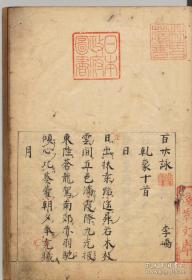 日本
政府
圖書
百廿詠 李嶠
乾象十首
日
日出扶桑路遥昇若木枝
雲間五色滿霞際九光披
東陸蒼龍駕南郊赤羽馳
傾心比葵藿朝夕奉堯曦
月